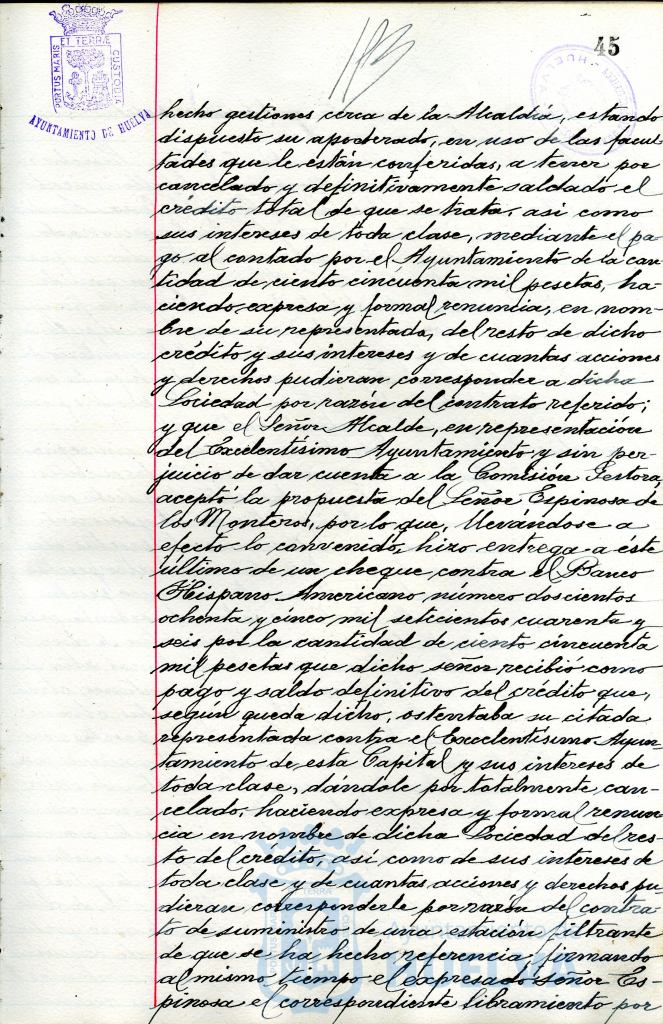 45
PORTUS MARIS ET TERRÆ CUSTODIA
AYUNTAMIENTO DE HUELVA
HUELVA
hecho gestiones cerca de la Alcaldía, estando
dispuesto su apoderado, en uso de las facul-
tades que le están conferidas, a tener por
cancelado y definitivamente saldado el
crédito total de que se trata, asi como
sus intereses de toda clase, mediante el pa-
go al contado por el Ayuntamiento de la can-
tidad de ciento cincuenta mil pesetas, ha-
ciendo expresa y formal renuncia, en nom-
bre de su representada, del resto de dicho
crédito y sus intereses y de cuantas acciones
y derechos pudieran corresponder a dicha
Sociedad por razón del contrato referido;
y que el Señor Alcalde, en representación
del Excelentísimo Ayuntamiento y sin per-
juicio de dar cuenta a la Comisión Gestora,
aceptó la propuesta del Señor Espinosa de
los Monteros, por lo que, llevándose a
efecto lo convenido, hizo entrega a éste
último de un cheque contra el Banco
Hispano Americano número doscientos
ochenta y cinco mil setecientos cuarenta y
seis por la cantidad de ciento cincuenta
mil pesetas que dicho señor recibió como
pago y saldo definitivo del crédito que,
según queda dicho, ostentaba su citada
representada contra el Excelentísimo Ayun-
tamiento de esta Capital y sus intereses de
toda clase, dándole por totalmente can-
celado, haciendo expresa y formal renun-
cia en nombre de dicha Sociedad del res-
to del crédito, así como de sus intereses de
toda clase y de cuantas acciones y derechos pu-
dieran corresponderle por razón del contra-
to de suministro de una estación filtrante
de que se ha hecho referencia, firmando
al mismo tiempo el expresado señor Es-
pinosa el correspondiente libramiento por
Ayuntamiento
HUELVA